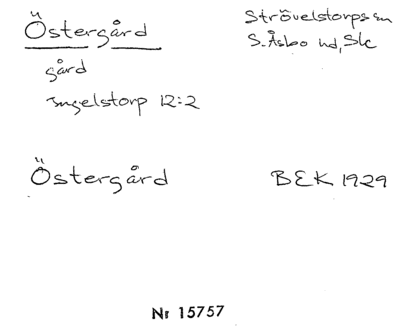 Östergård
Strövelstorps sn
S. Åsbo hd, Slc
gård
Ingelstorp 12:2
Östergård
BEK 1929
Nr 15757